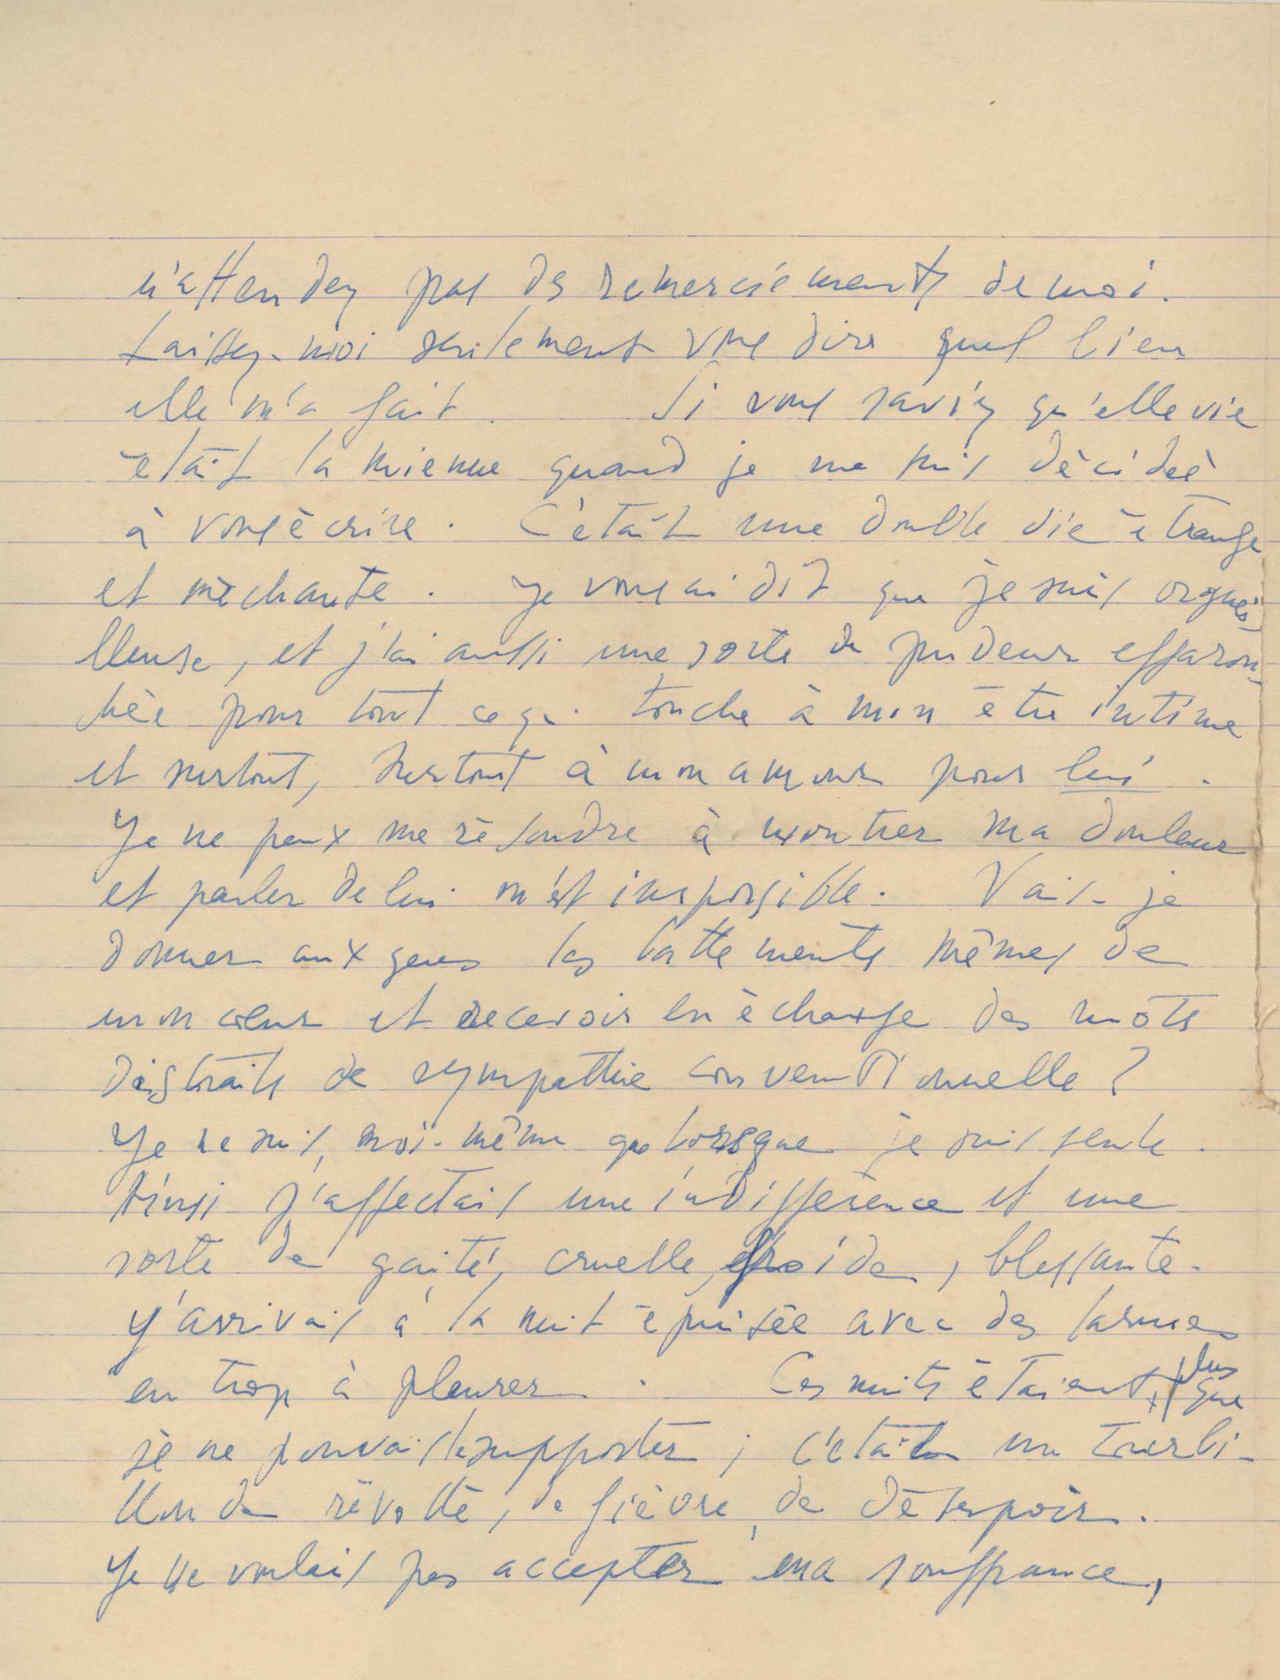 n'attendez pas de remerciements de moi.
Laissez-moi seulement vous dire quel bien
elle m'a fait. Si vous saviez qu'elle vie
était la mienne quand je me suis décidée
à vous écrire. C'était une double vie étrange
et méchante. Je vous ai dit que je suis orguei-
lleuse, et j'ai aussi une sorte de pudeur effarou-
chée pour tout ce qui touche à mon être intime
et surtout, surtout à mon amour pour lui.
Je ne peux me résoudre à montrer ma douleur
et parler de lui m'est impossible. Vais-je
donner aux gens les battements mêmes de
mon cœur et recevoir en échange des mots
distraits de sympathie conventionnelle?
Je ne suis, moi-même que lorsque je suis seule.
Ainsi j'affectais une indifférence et une
sorte de gaité, cruelle, froide, blessante.
J'arrivais à la nuit épuisée avec des larmes
en trop à pleurer. Ces nuits étaient plus que
je ne pouvais supporter; c'était un tourbi-
llon de révolte, de fièvre, de désespoir.
Je ne voulais pas accepter ma souffrance,